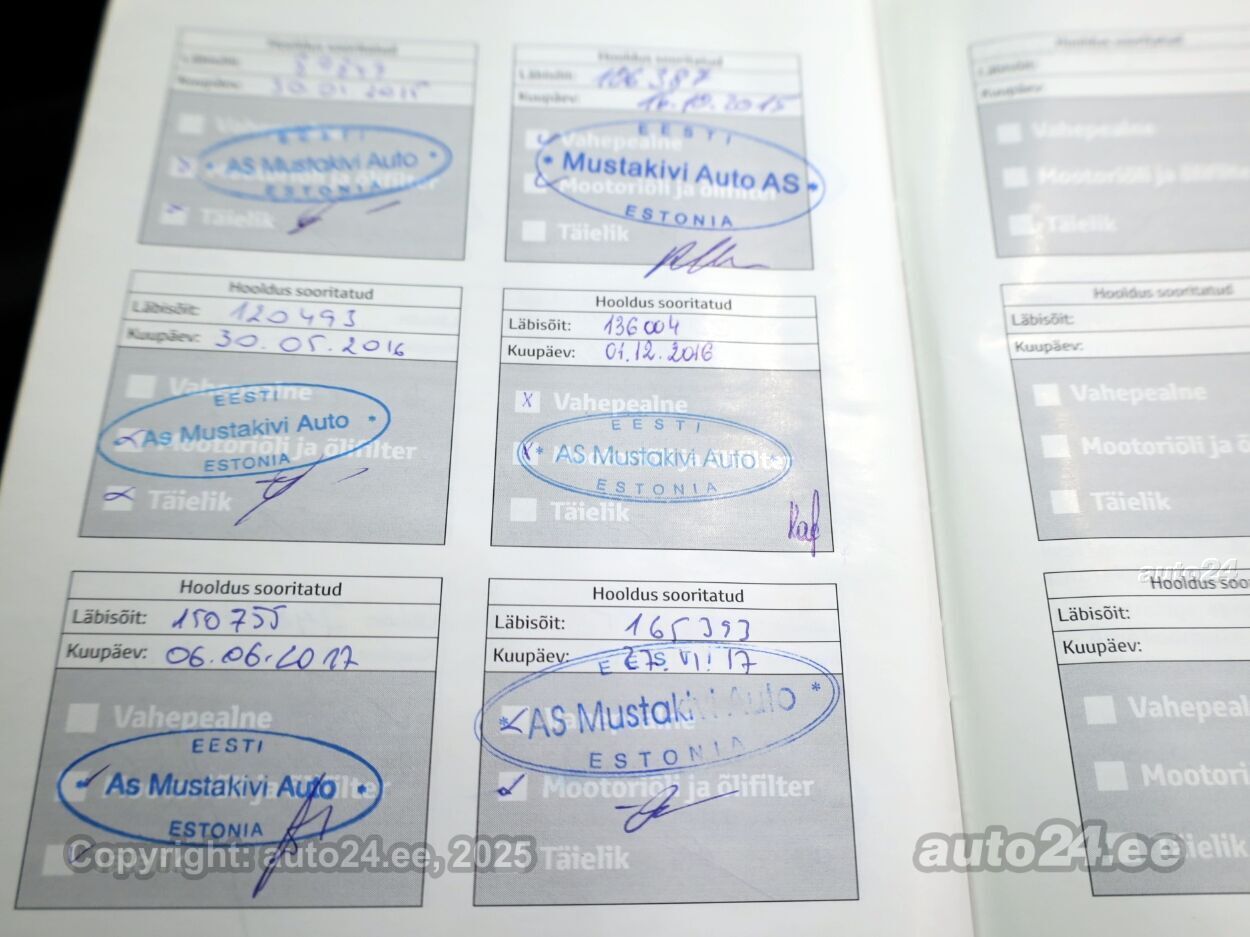 Hooldus sooritatud
Läbisõit:
Kuupäev: 30.01 2015
EESTI
AS Mustakivi Auto
ESTONIA
Täielik
Hooldus sooritatud
Läbisõit: 106 387
Kuupäev: 16.10.2015
Vahepealne
EESTI
Mustakivi Auto AS
Mootoriõli ja õlifilter
ESTONIA
Täielik
Hooldus sooritatud
Läbisõit: 120 493
Kuupäev: 30.05.2016
Vahepealne
EESTI
As Mustakivi Auto
Mootoriõli ja õlifilter
ESTONIA
Täielik
Hooldus sooritatud
Läbisõit: 136 004
Kuupäev: 01.12.2016
Vahepealne
EESTI
AS Mustakivi Auto
ESTONIA
Täielik
Hooldus sooritatud
Läbisõit: 150 755
Kuupäev: 06.06.2017
Vahepealne
EESTI
As Mustakivi Auto
ESTONIA
Hooldus sooritatud
Läbisõit: 165 393
Kuupäev:
AS Mustakivi Auto
ESTONIA
Mootoriõli ja õlifilter
Täielik
Hooldus sooritatud
Läbisõit:
Kuupäev:
Vahepealne
Mootoriõli ja õlifilter
Täielik
Hooldus sooritatud
Läbisõit:
Kuupäev:
Vahepealne
Mootoriõli ja õ
Täielik
auto24
Hooldus soo
Läbisõit:
Kuupäev:
Vahepeal
Mootori
Täielik
Copyright: auto24.ee, 2025
auto24.ee